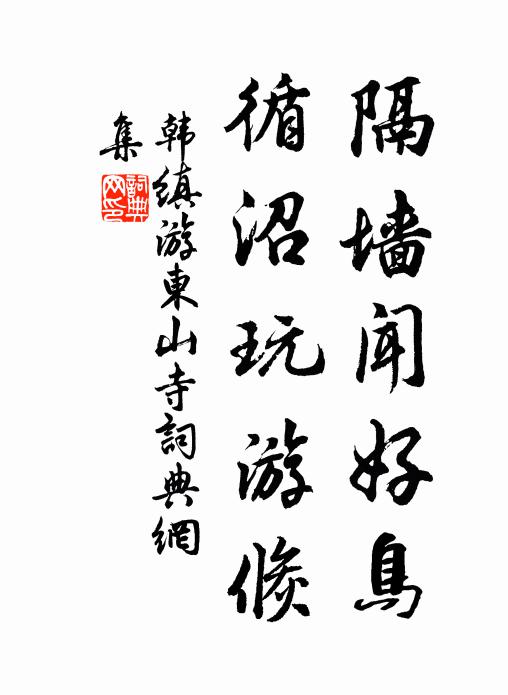 隔墙闻好鳥
循沼玩游鯈
韩縝游東山寺詞典網
集
詞典网印